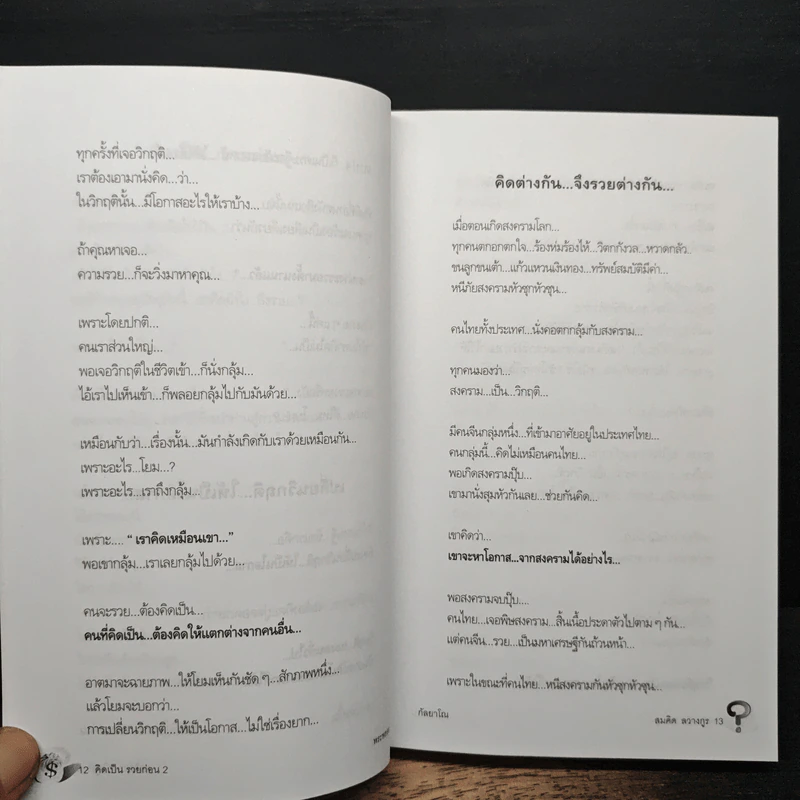 ทุกครั้งที่เจอวิกฤติ...
เราต้องเอามานั่งคิด...ว่า...
ในวิกฤตินั้น...มีโอกาสอะไรให้เราบ้าง...
ถ้าคุณหาเจอ...
ความรวย...ก็จะวิ่งมาหาคุณ...
เพราะโดยปกติ...
คนเราส่วนใหญ่...
พอเจอวิกฤติในชีวิตเข้า...ก็นั่งกลุ้ม...
ไอ้เราไปเห็นเข้า...ก็พลอยกลุ้มไปกับมันด้วย...
เหมือนกับว่า...เรื่องนั้น...มันกำลังเกิดกับเราด้วยเหมือนกัน...
เพราะอะไร...โยม...?
เพราะอะไร...เราถึงกลุ้ม...
เพราะ.... “ เราคิดเหมือนเขา...”
พอเขากลุ้ม...เราเลยกลุ้มไปด้วย...
คนจะรวย...ต้องคิดเป็น...
คนที่คิดเป็น...ต้องคิดให้แตกต่างจากคนอื่น...
อาตมาจะฉายภาพ...ให้โยมเห็นกันชัด ๆ...สักภาพหนึ่ง...
แล้วโยมจะบอกว่า...
การเปลี่ยนวิกฤติ...ให้เป็นโอกาส...ไม่ใช่เรื่องยาก...
$ 12 คิดเป็น รวยก่อน 2
คิดต่างกัน...จึงรวยต่างกัน...
เมื่อตอนเกิดสงครามโลก...
ทุกคนตกอกตกใจ...ร้องห่มร้องไห้...วิตกกังวล...หวาดกลัว...
ขนลูกขนเต้า...แก้วแหวนเงินทอง...ทรัพย์สมบัติมีค่า...
หนีภัยสงครามหัวซุกหัวซุน...
คนไทยทั้งประเทศ...นั่งคอตกกลุ้มกับสงคราม...
ทุกคนมองว่า...
สงคราม...เป็น...วิกฤติ...
มีคนจีนกลุ่มหนึ่ง...ที่เข้ามาอาศัยอยู่ในประเทศไทย...
คนกลุ่มนี้...คิดไม่เหมือนคนไทย...
พอเกิดสงครามปุ๊บ...
เขามานั่งสุมหัวกันเลย...ช่วยกันคิด...
เขาคิดว่า...
เขาจะหาโอกาส...จากสงครามได้อย่างไร...
พอสงครามจบปุ๊บ....
คนไทย...เจอพิษสงคราม...สิ้นเนื้อประดาตัวไปตาม ๆ กัน...
แต่คนจีน...รวย...เป็นมหาเศรษฐีกันถ้วนหน้า...
เพราะในขณะที่คนไทย...หนีสงครามกันหัวซุกหัวซุน...
กัลยาโณ
สมคิด ลวางกูร 13